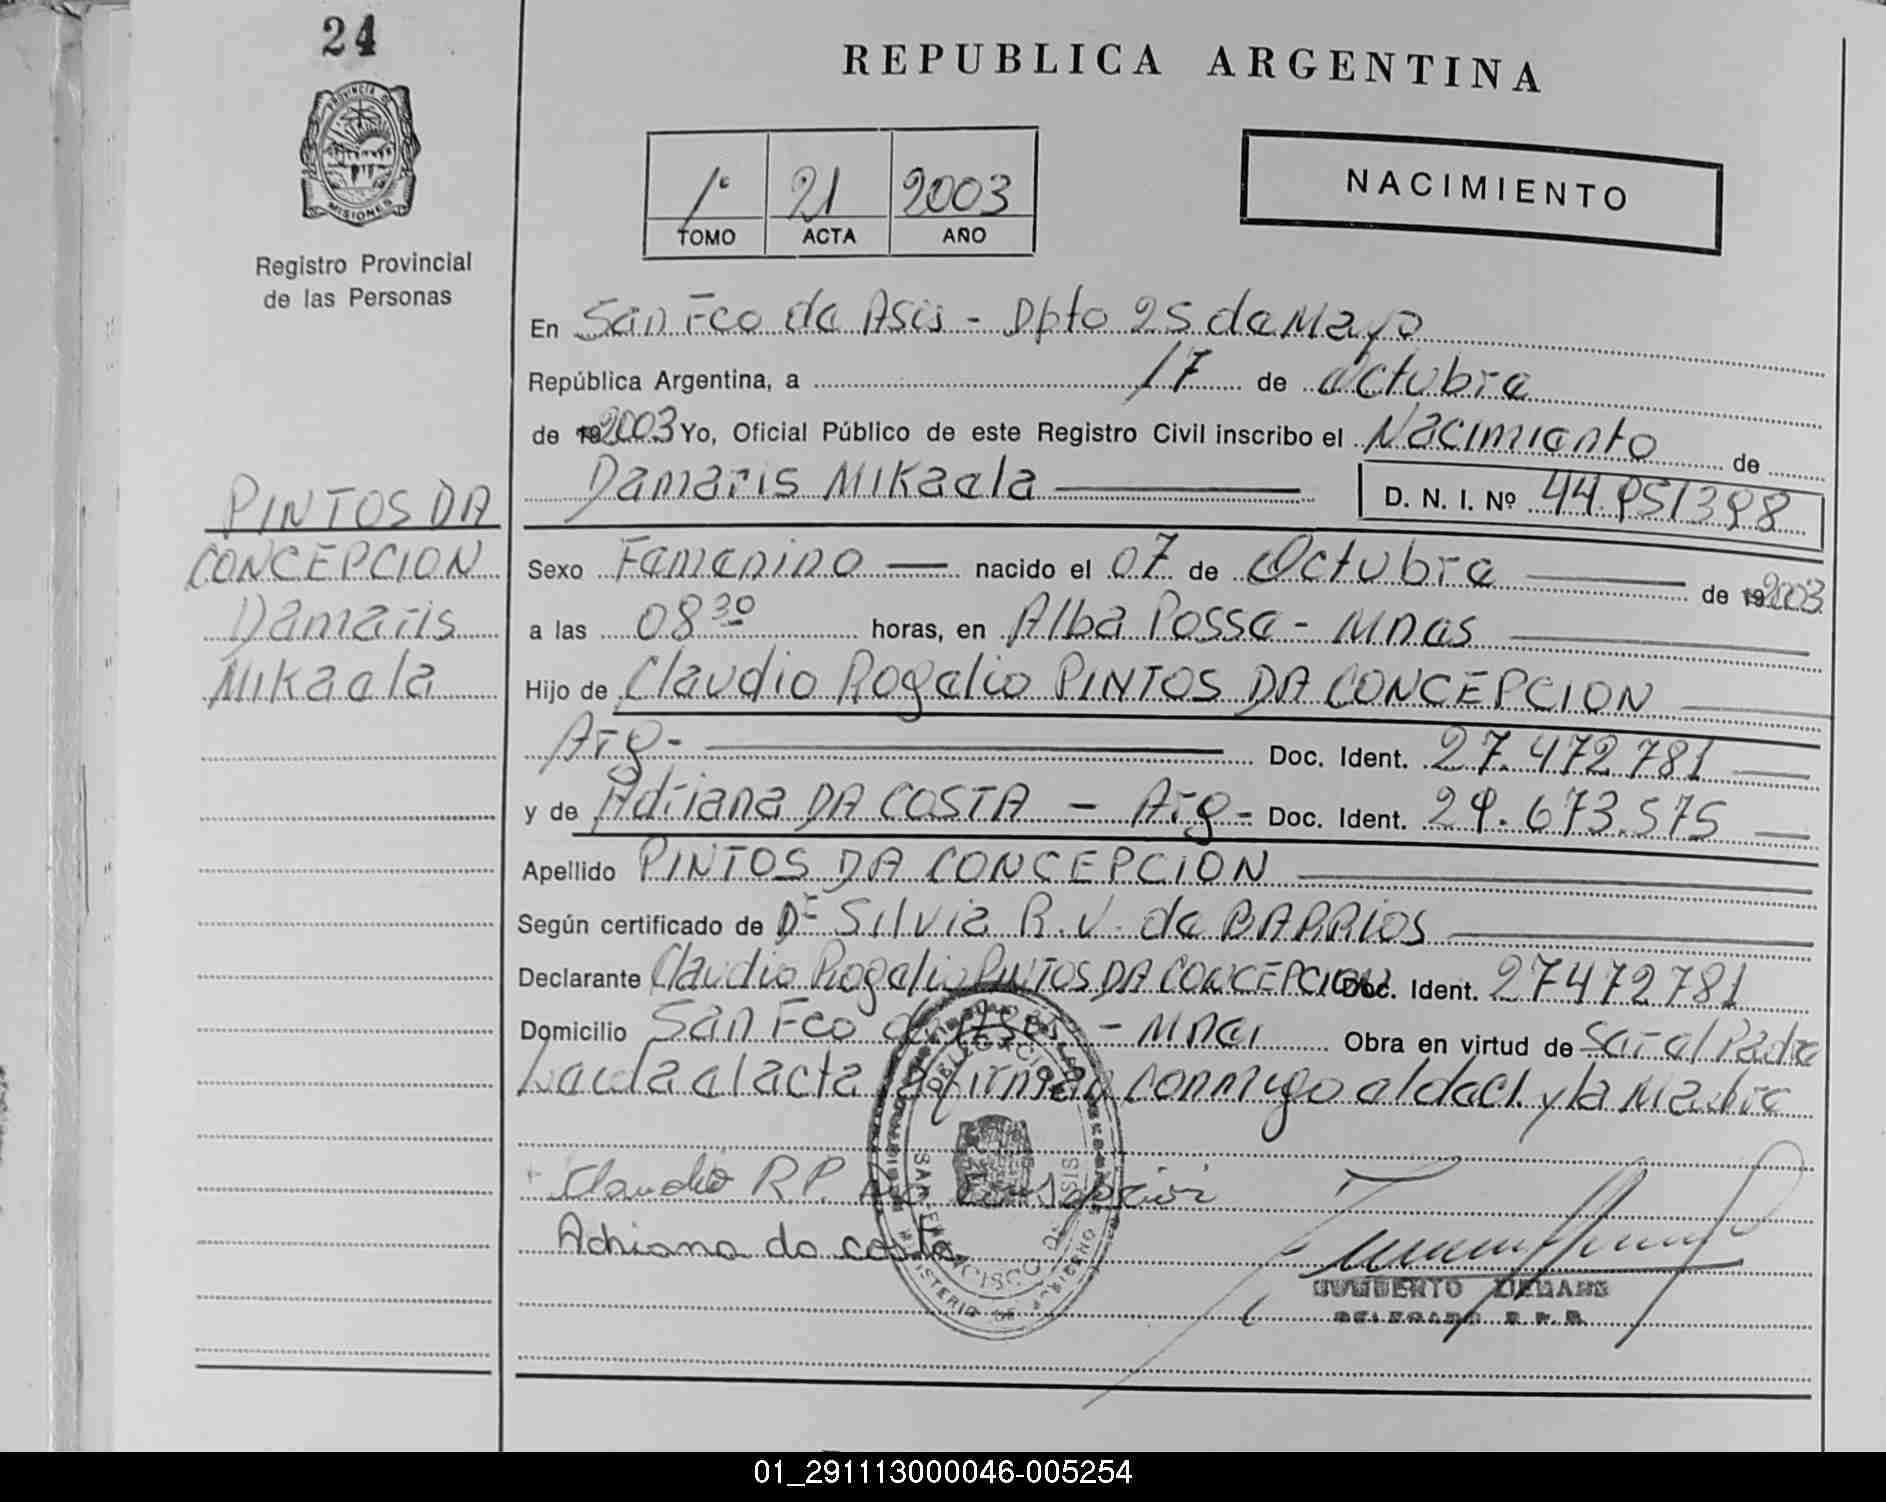 24
PROVINCIA DE
MISIONES
Registro Provincial
de las Personas
REPUBLICA ARGENTINA
1º 21 2003
TOMO ACTA AÑO
NACIMIENTO
En San Fco de Asis - Dpto 25 de Mayo
República Argentina, a 17 de Octubre
de 19 2003 Yo, Oficial Público de este Registro Civil inscribo el Nacimiento de
Damaris Mikaela D. N. I. Nº 44.951398
PINTOS DA
CONCEPCION
Damaris
Mikaela
Sexo Femenino nacido el 07 de Octubre de 19 2003
a las 08 30 horas, en Alba Posse - Mnes
Hijo de Claudio Rogelio PINTOS DA CONCEPCION
Arg- Doc. Ident. 27.472781
y de Adriana DA COSTA - Arg- Doc. Ident. 29.673.575
Apellido PINTOS DA CONCEPCION
Según certificado de Dº Silvia R. V. de BARRIOS
Declarante Claudio Rogelio PINTOS DA CONCEPCION Doc. Ident. 27472781
Domicilio San Fco de Asis - Mnes Obra en virtud de Ser el Padre
Leida el acta firman conmigo el decl. y la Madre
Claudio R.P. Da Concepcion
Adriana da costa
DELEGACION
SAN FRANCISCO DE ASIS
MINISTERIO DE GOBIERNO
HUMBERTO
DELEGADO R. P. P.
01_291113000046-005254